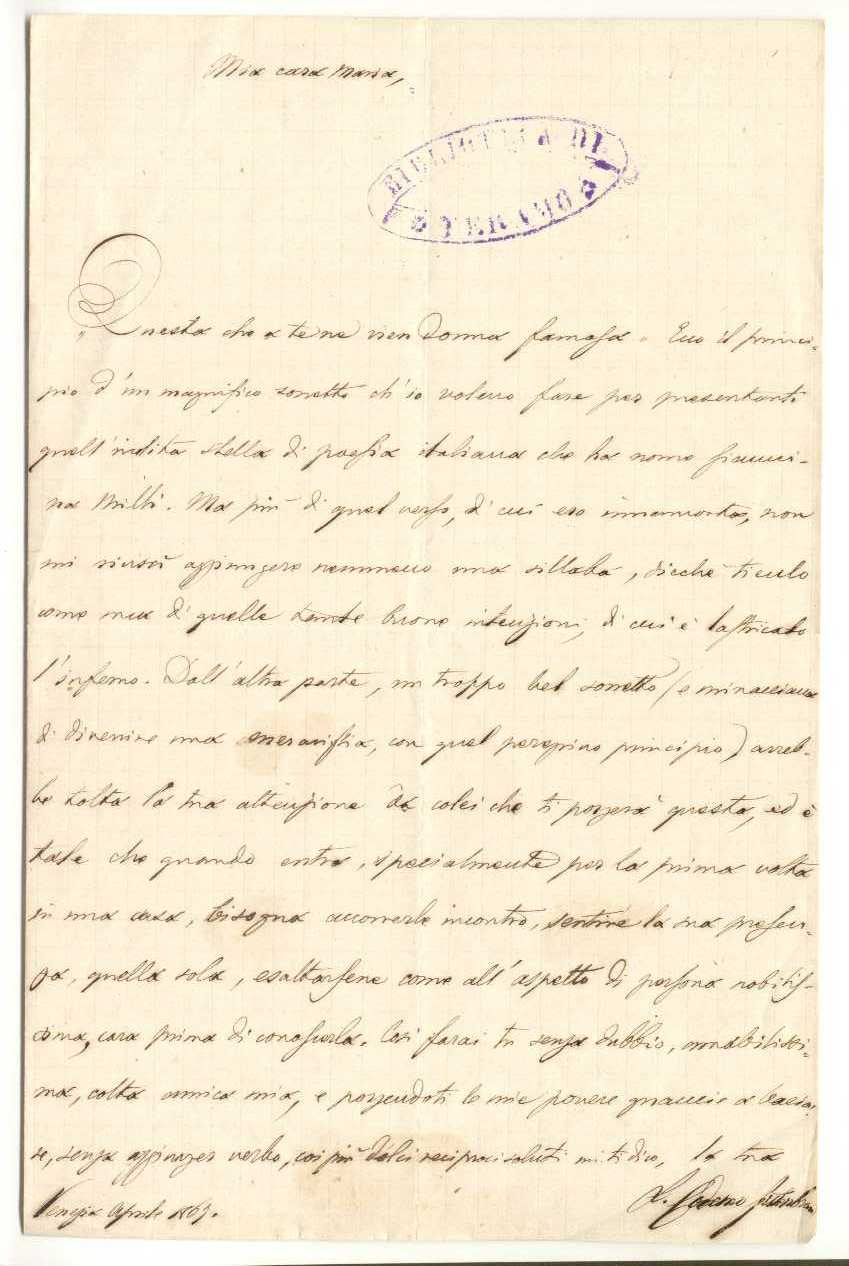 Mia cara Maria,
BIBLIOTECA DI
TERAMO
„ Questa che a te ne vien Donna famosa „ Ecco il princi-
pio d'un magnifico sonetto ch'io voleva fare per presentarti
quell'inclita stella di poesia italiana che ha nome Gianni-
na Milli. Ma più di quel verso, di cui ero innamorata, non
mi riuscì aggiungere nemmeno una sillaba, sicchè ti
come una di quelle tante buone intenzioni, di cui è lastricato
l'inferno. Dall'altra parte, un troppo bel sonetto (e minacciava
di divenire una meraviglia, con quel peregrino principio) avreb-
be tolta la tua attenzione da colei che ti porgerà questa, ed è
tale che quando entra, specialmente per la prima volta
in una casa, bisogna accorrerle incontro, sentire la sua presen-
za, quella sola, esaltarsene come all'aspetto di persona nobilis-
sima, cara prima di conoscerla. Così farai tu senza dubbio, amabilissi-
ma, colta amica mia, e porgendoti le mie povere guancie a bacia-
re, senza aggiunger verbo, coi più dolci reciproci saluti mi ti dico, la tua
Venezia Aprile 1865.
L.